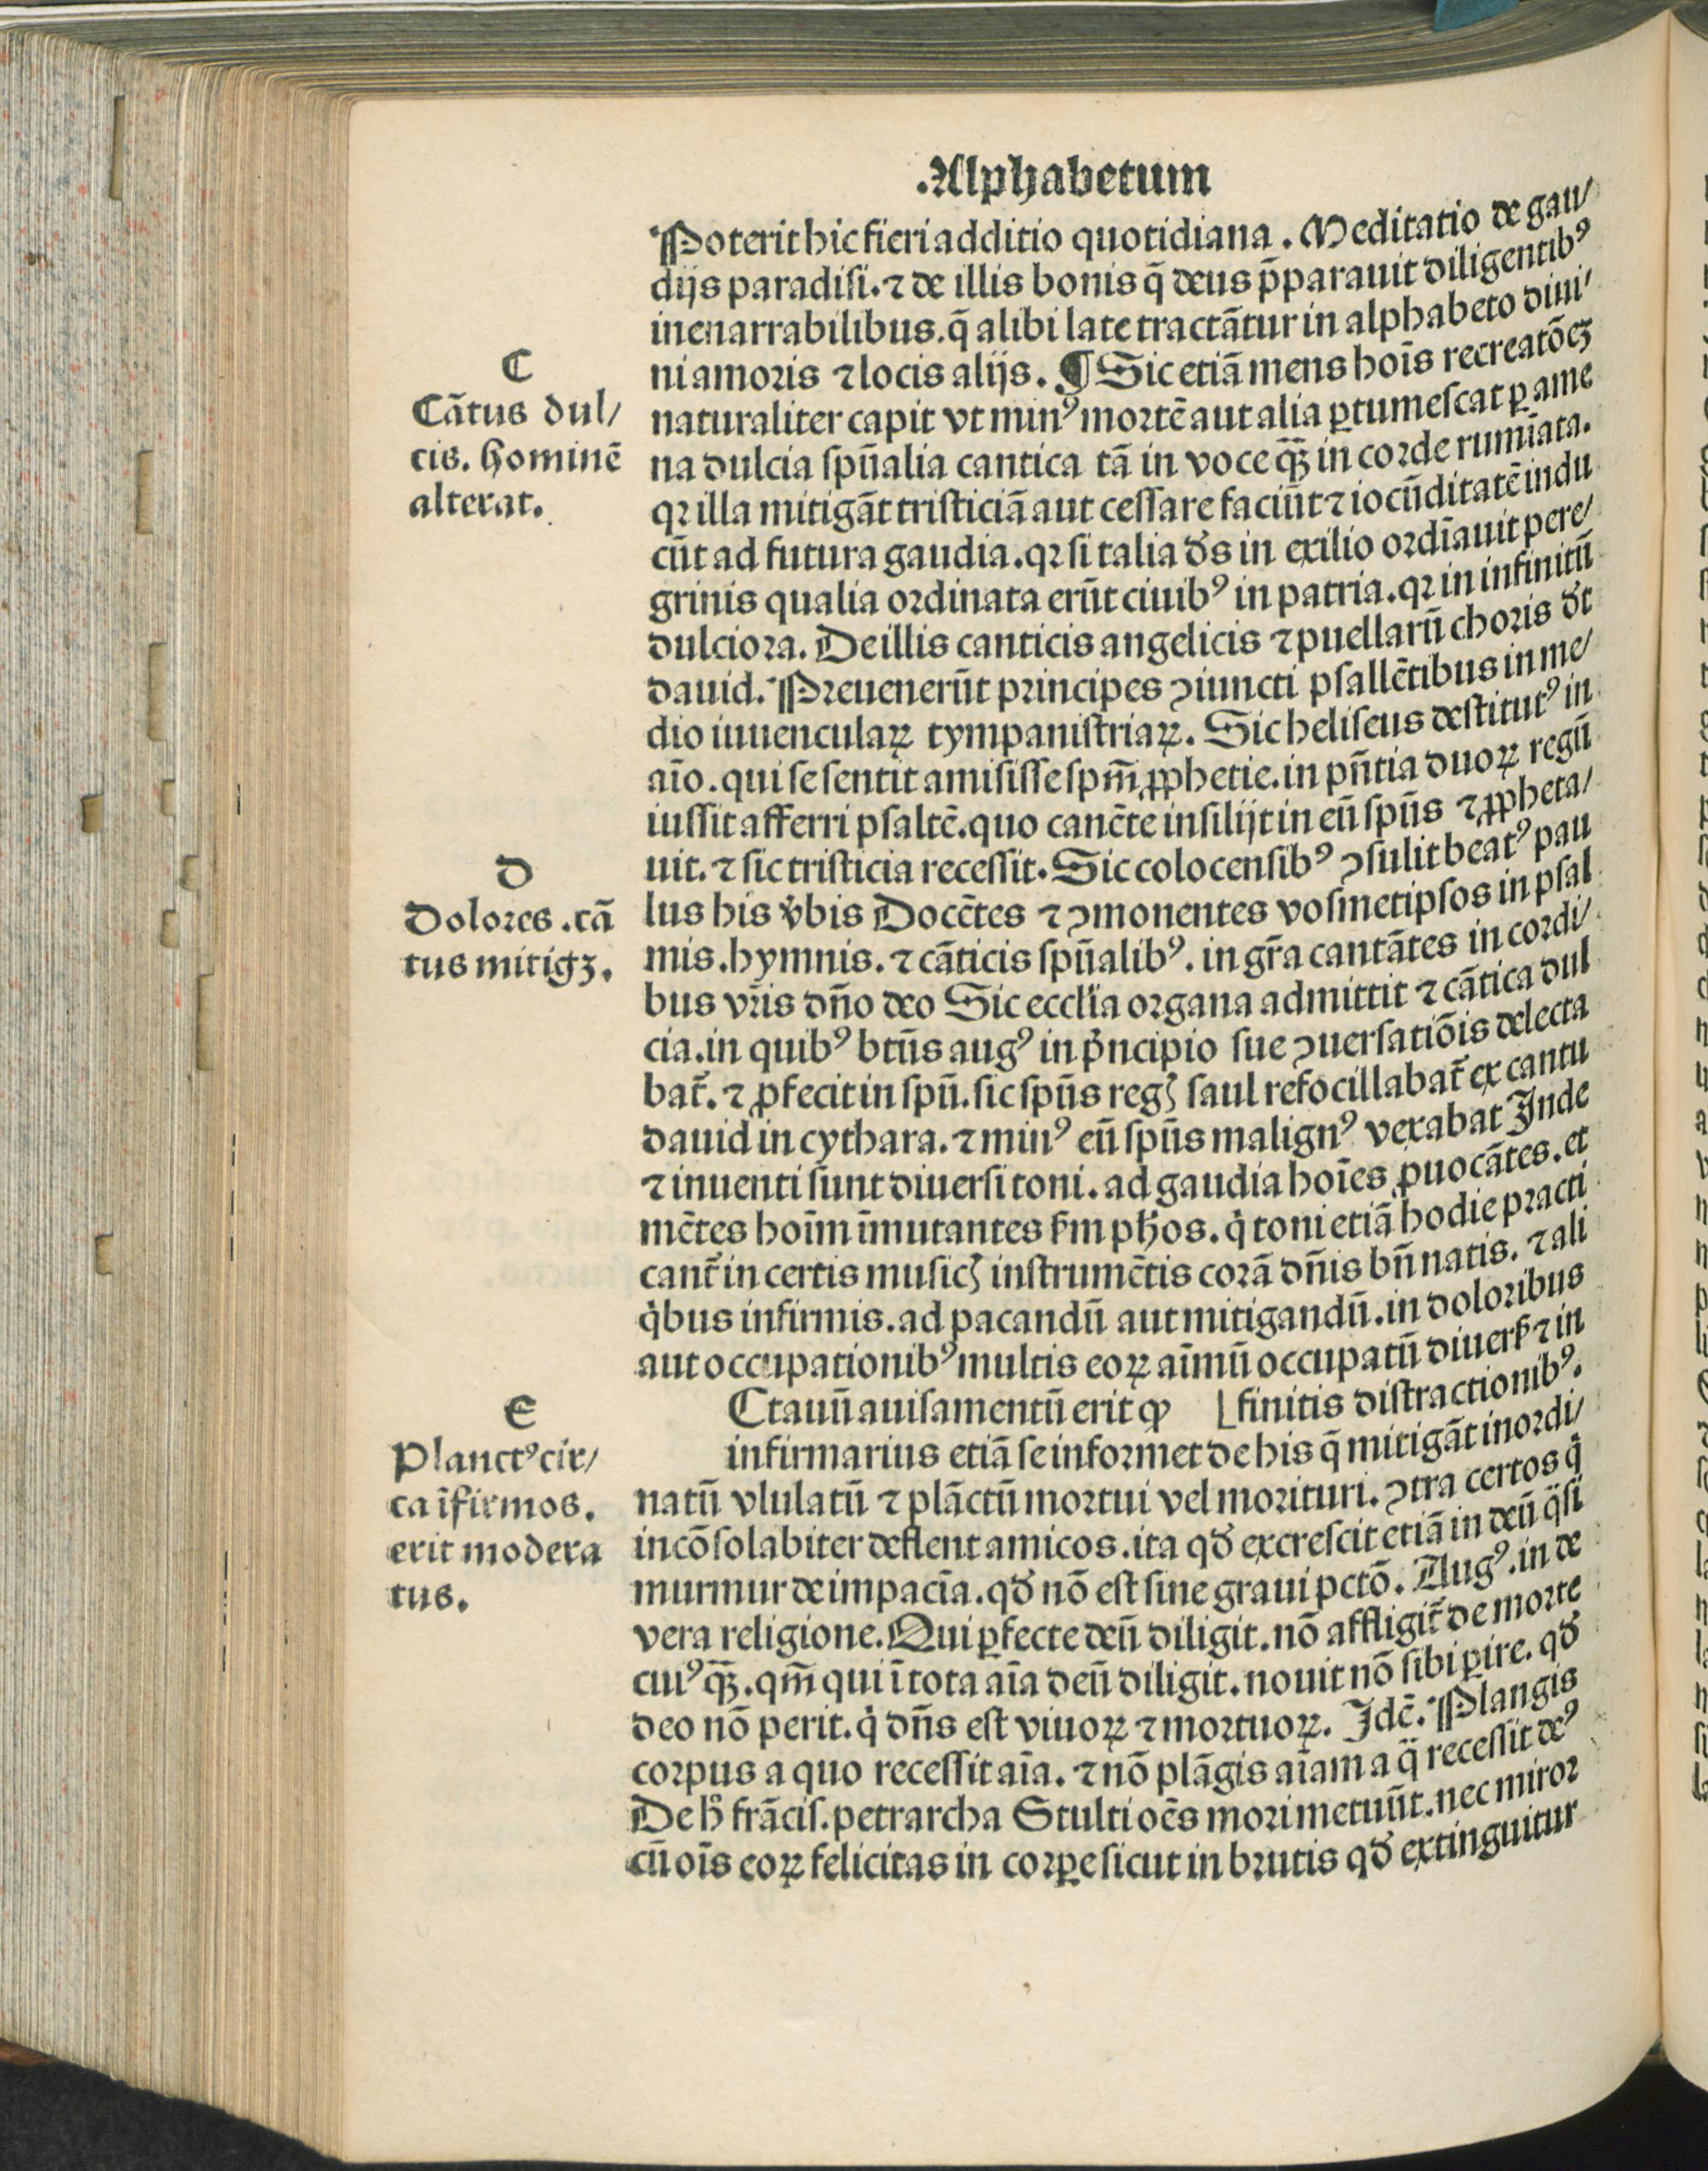 .Alphabetum
Poterit hic fieri additio quotidiana . Meditatio de gau/
dijs paradisi. ⁊ de illis bonis q̄ deus p̄parauit diligentibꝰ
inenarrabilibus. q̄ alibi late tractātur in alphabeto diui/
ni amoris ⁊ locis alijs . ¶ Sic etiā mens hoīs recreatōeꝫ
naturaliter capit vt minꝰ mortē aut alia ꝑtumescat ꝑ ame
na dulcia spūalia cantica tā in voce qꝫ̄ in corde rumīata.
qꝛ illa mitigāt tristiciā aut cessare faciūt ⁊ iocūditatē indu
cūt ad futura gaudia. qꝛ si talia d̓s in exilio ordīauit pere/
grinis qualia ordinata erūt ciuibꝰ in patria. qꝛ in infinitū
dulciora. De illis canticis angelicis ⁊ puellarū choris d̓t
dauid. Preuenerūt principes ꝯiuncti psallētibus in me/
dio iuuenculaꝝ tympanistriaꝝ. Sic heliseus destitutꝰ in
aīo. qui se sentit amisisse spm̄ ꝓphetie. in pn̄tia duoꝝ regū
iussit afferri psaltē. quo canēte insilijt in eū spūs ⁊ ꝓpheta/
uit. ⁊ sic tristicia recessit. Sic colocensibꝰ ꝯsulit beatꝰ pau
lus his v̓bis Docētes ⁊ ꝯmonentes vosmetipsos in psal
mis. hymnis. ⁊ cāticis spūalibꝰ. in gr̄a cantātes in cordi/
bus vr̄is dn̄o deo Sic eccl̄ia organa admittit ⁊ cātica dul
cia. in quibꝰ btūs augꝰ in pͥncipio sue ꝯuersatiōis delecta
bat᷑. ⁊ ꝓfecit in spū. sic spūs regꝭ saul refocillabat᷑ ex cantu
dauid in cythara. ⁊ minꝰ eū spūs malignꝰ vexabat Inde
⁊ inuenti sunt diuersi toni. ad gaudia hoīes ꝓuocātes. et
mētes hoīm īmutantes ẜm pħos. qͥ toni etiā hodie practi
cant᷑ in certis musicꝭ instrumētis corā dn̄is bn̄ natis. ⁊ ali
qͥbus infirmis. ad pacandū aut mitigandū. in doloribus
aut occupationibꝰ multis eoꝝ aīmū occupatū diuerẜ ⁊ in
Ctauū auisamentū erit ꝙ ⌊finitis distractionibꝰ.
infirmarius etiā se informet de his q̄ mitigāt inordi/
natū vlulatū ⁊ plāctū mortui vel morituri. ꝯtra certos qͥ
incōsolabiter deflent amicos. ita qd̓ excrescit etiā in deū qͣsi
murmur de impacīa. qd̓ nō est sine graui pctō. Augꝰ. in de
vera religione. Qui ꝑfecte deū diligit. nō affligit᷑ de morte
cuiꝰqꝫ̄. qm̄ qui ī tota aīa deū diligit. nouit nō sibi ꝑire. qd̓
deo nō perit. qͥ dn̄s est viuoꝝ ⁊ mortuoꝝ. Idē. Plangis
corpus a quo recessit aīa. ⁊ nō plāgis aīam a qͣ recessit deꝰ
De hͦ frācis. petrarcha Stulti oēs mori metuūt. nec miror
cū oīs eoꝝ felicitas in corꝑe sicut in brutis qd̓ extinguitur
C
Cātus dul/
cis. hominē
alterat.
D
Dolores .cā
tus mitigꝫ.
E
Planctꝰ cir/
ca īfirmos.
erit modera
tus.